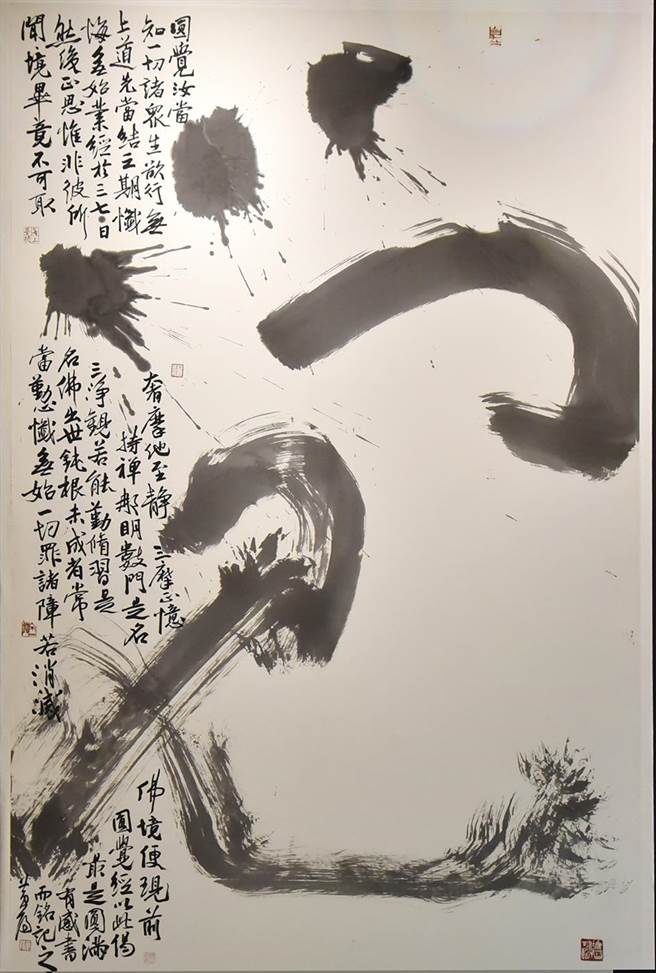 圓覺汝當
知一切諸眾生欲行無
上道先當結三期懺
悔無始業經於三七日
然後正思惟非彼所
聞境畢竟不可取
奢摩他至靜 三摩正憶
持禪那明數門是名
三淨觀若能勤脩習是
名佛出世鈍根未成者常
當勤心懺無始一切罪諸障若消滅
佛境便現前
圓覺經以此偈
最是圓滿
有感書
而銘記之